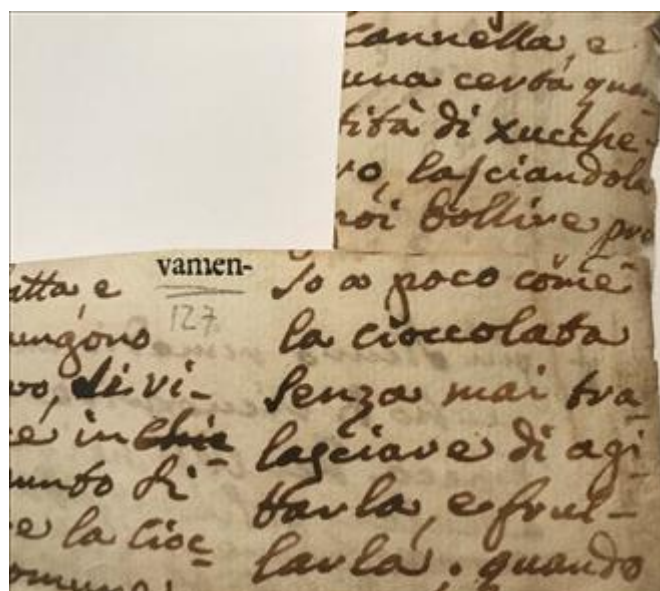 cannella, e
una certa quan
tità di zucche-
ro, lasciandola
poi bollire
so a poco come
la cioccolata
senza mai tra-
lasciare di agi-
tarla, e frul-
larla. quando
vamen-
127.
atta, e
ungono
vo, di vi-
ce in
unto di
e la cioc-
omune